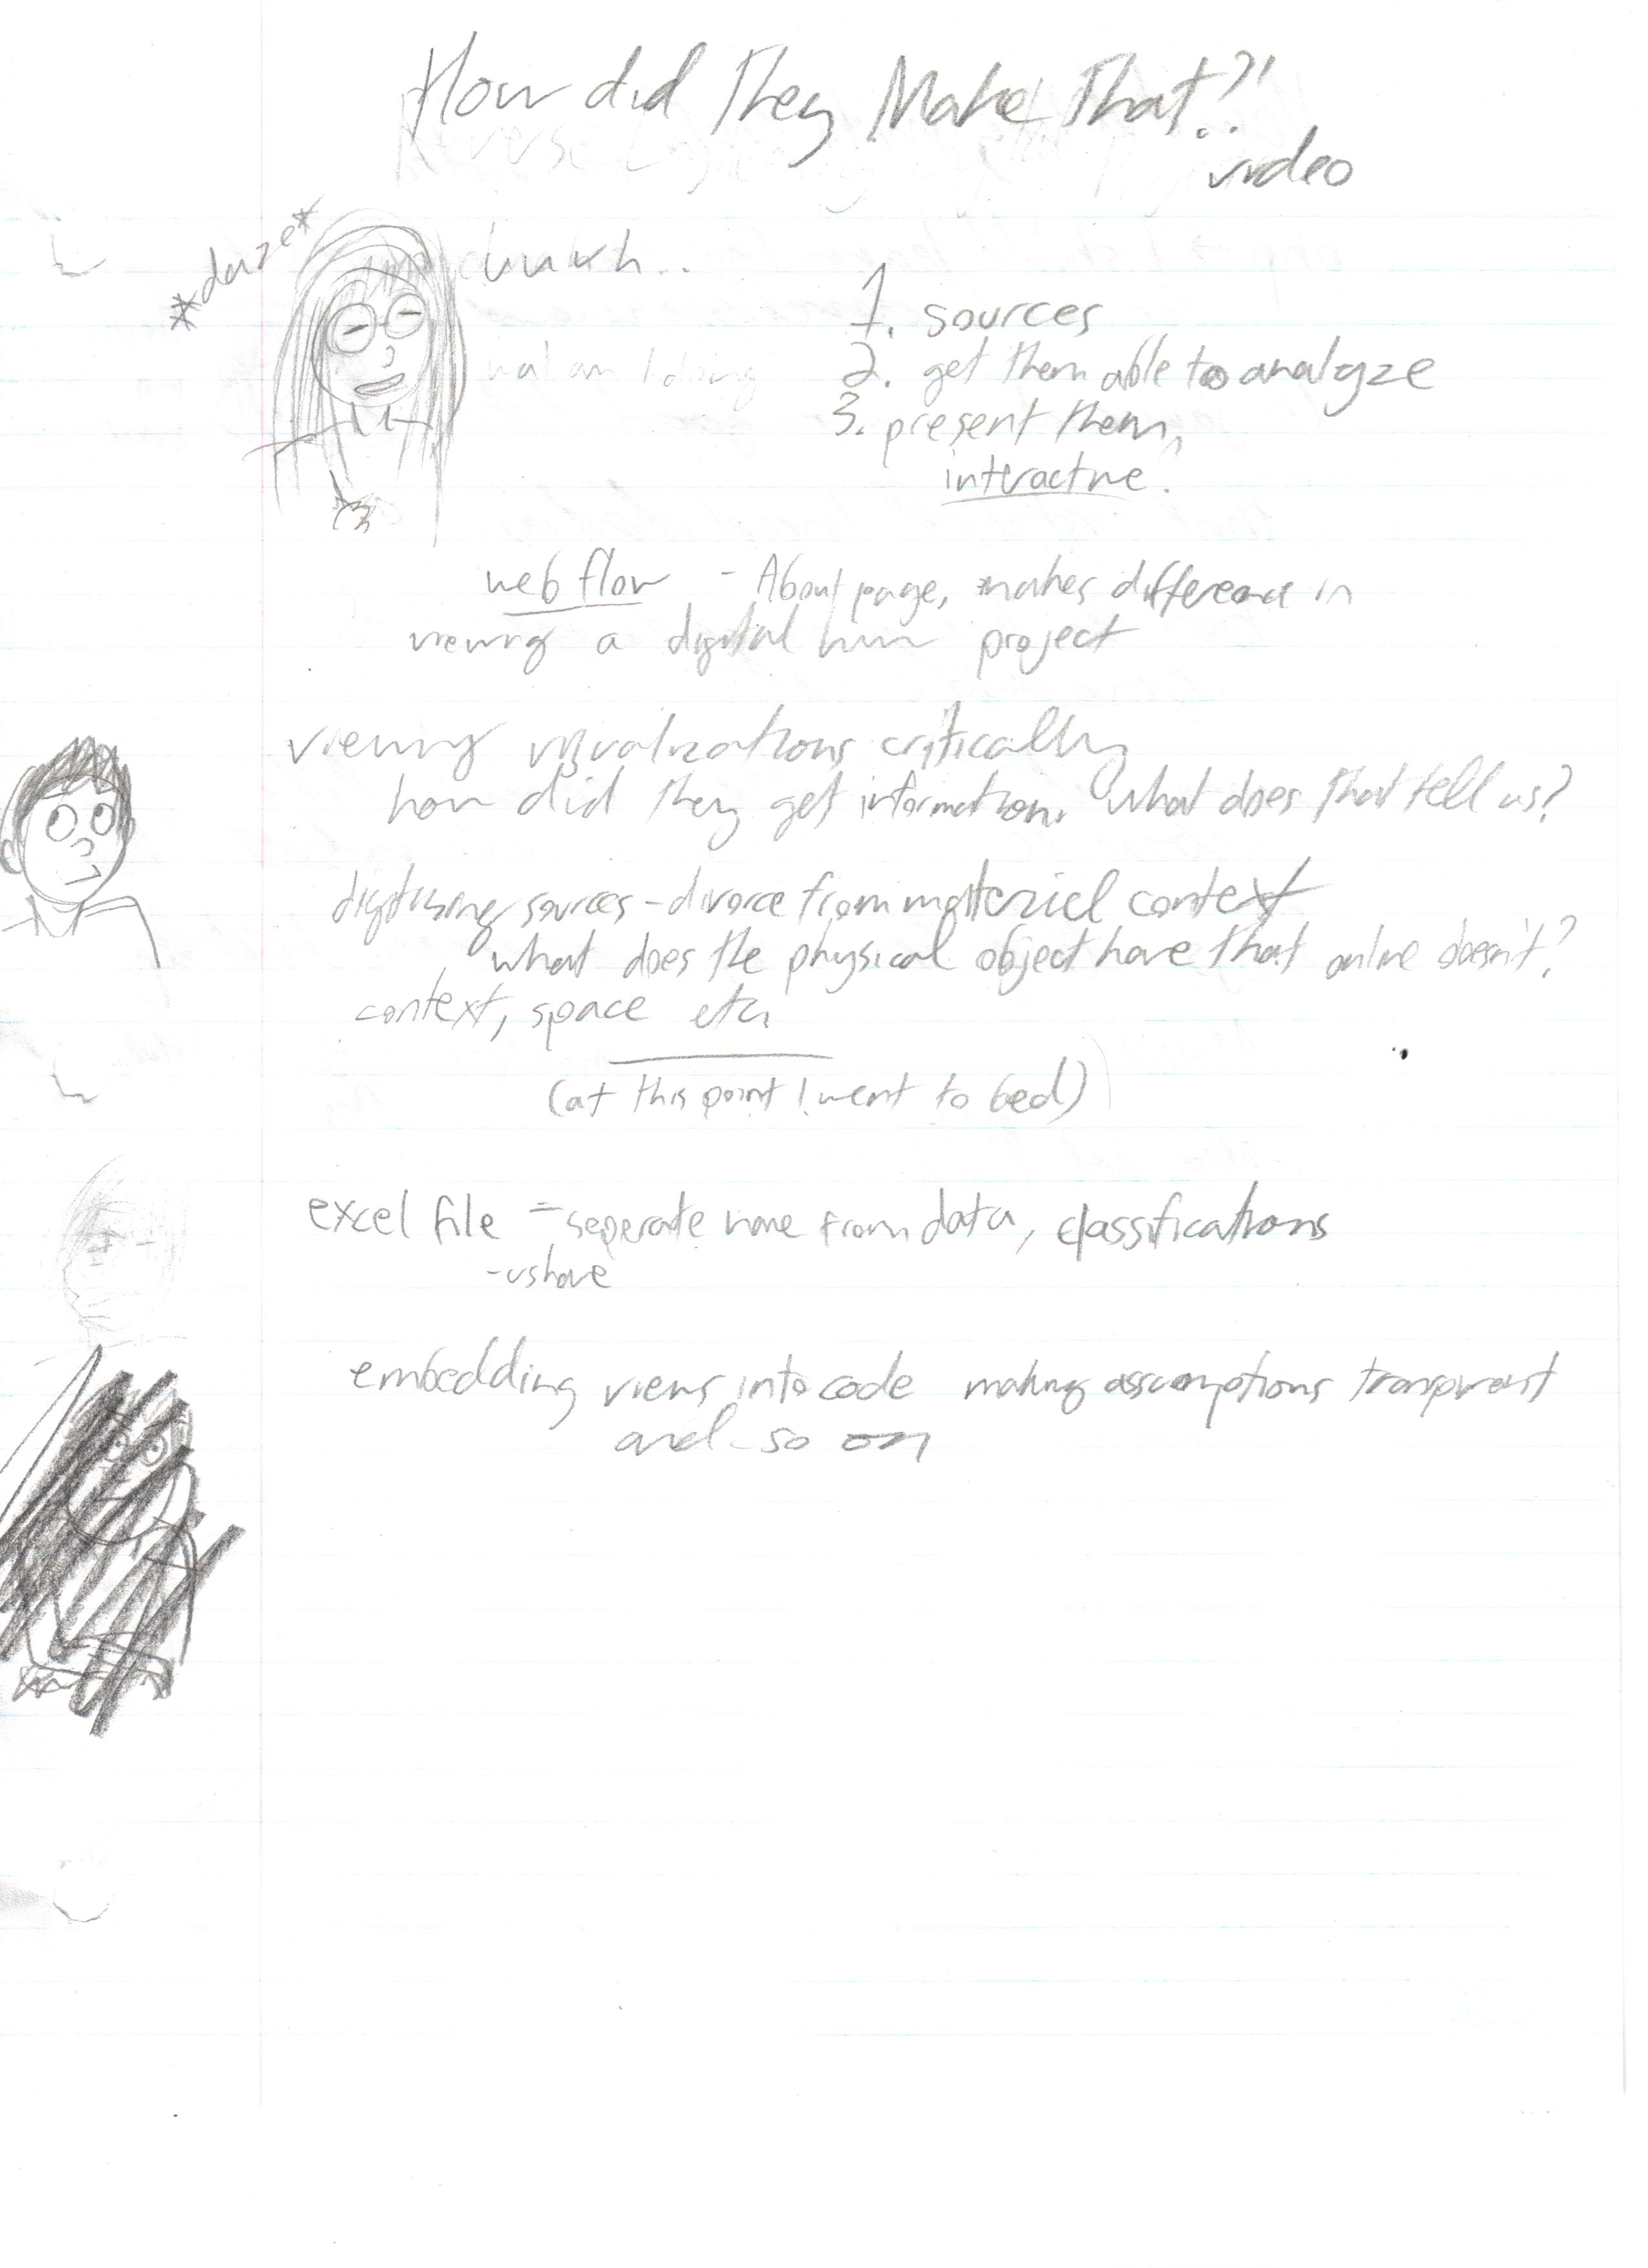 How did They Make That?!
video
*daze*
uuuhh..
1. sources
2. get them able to analyze
3. present them,
interactive.
web flow - About page, makes difference in
viewing a digital hum project
viewing visualizations critically
how did they get information. what does that tell us?
digitizing sources - divorce from materiel context
what does the physical object have that online doesn't?
context, space etc.
(at this point I went to bed)
excel file = seperate name from data, classifications
embedding views into code making assumptions transparent
and so on